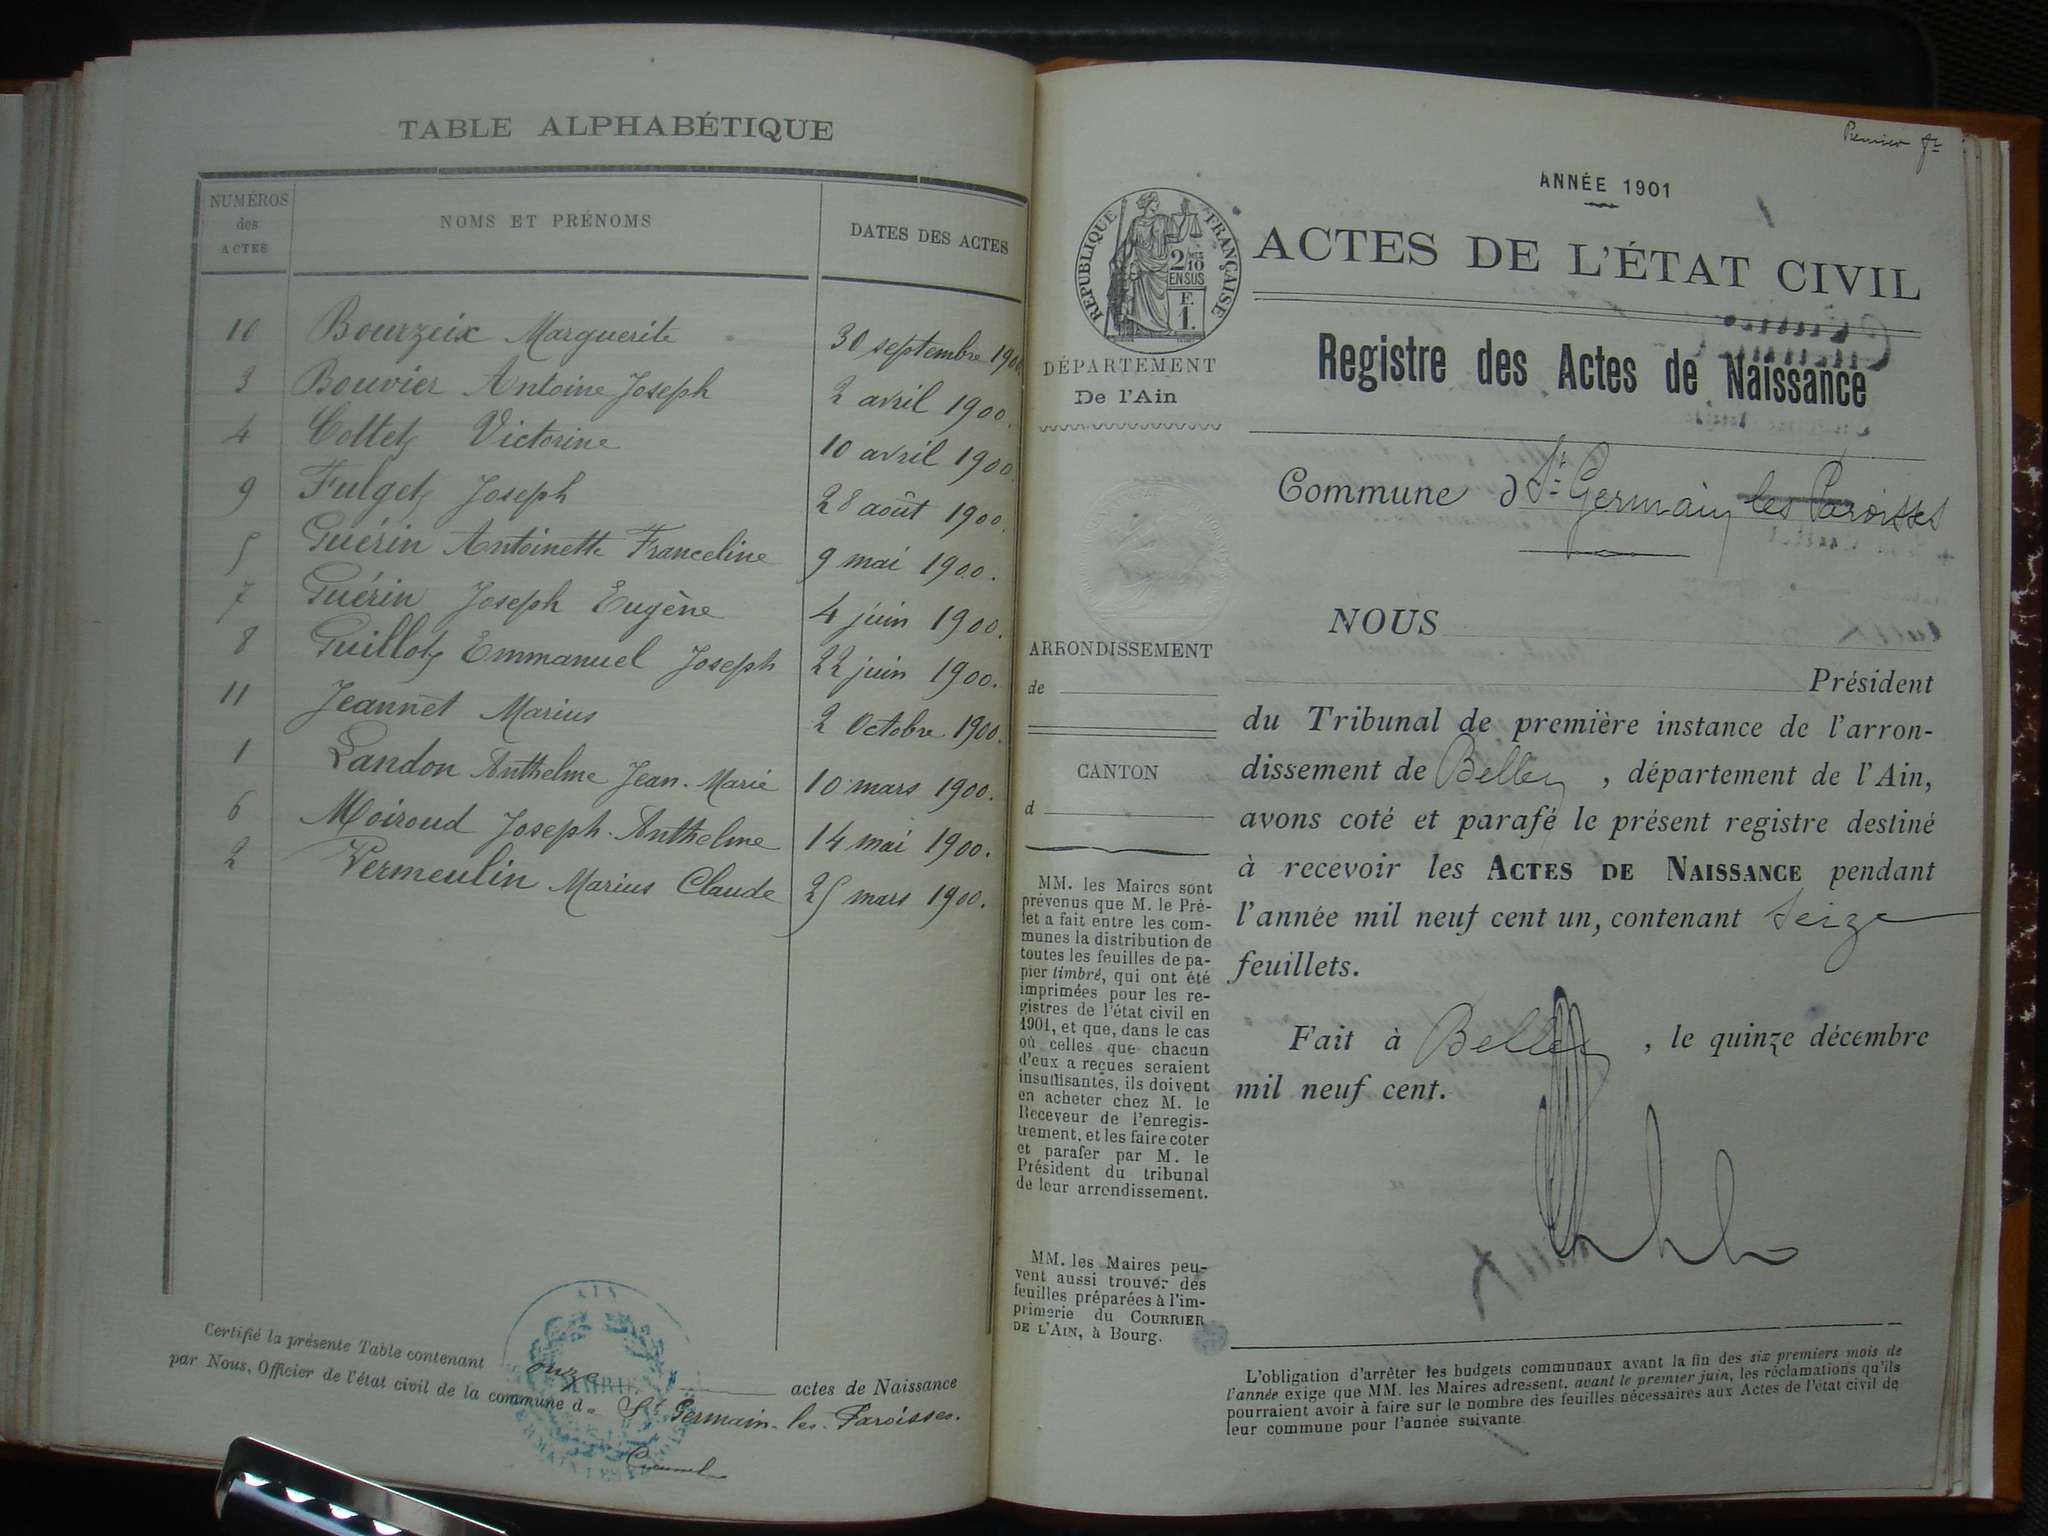 TABLE ALPHABÉTIQUE
NUMÉROS des ACTES NOMS ET PRÉNOMS DATES DES ACTES
10 Bourzeix Marguerite 30 septembre 1900.
3 Bouvier Antoine Joseph 2 avril 1900.
4 Collet Victorine 10 avril 1900.
9 Fulget Joseph 28 août 1900.
5 Guérin Antoinette Franceline 9 mai 1900.
7 Guérin Joseph Eugène 4 juin 1900.
8 Guillot Emmanuel Joseph 22 juin 1900.
11 Jeannet Marius 2 Octobre 1900.
1 Landon Anthelme Jean-Marie 10 mars 1900.
6 Moiroud Joseph-Anthelme 14 mai 1900.
2 Vermeulin Marius Claude 25 mars 1900.
Certifié la présente Table contenant onze actes de Naissance
par Nous, Officier de l'état civil de la commune de St Germain-les-Paroisses.
AIN
MAIRIE
Premier ft
ANNÉE 1901
RÉPUBLIQUE FRANÇAISE
2/10
EN SUS
F.
1.
ACTES DE L'ÉTAT CIVIL
Registre des Actes de Naissance
DÉPARTEMENT
De l'Ain
Commune d St Germain les Paroisses
ARRONDISSEMENT
de
CANTON
d
MM. les Maires sont
prévenus que M. le Pré-
fet a fait entre les com-
munes la distribution de
toutes les feuilles de pa-
pier timbré, qui ont été
imprimées pour les re-
gistres de l'état civil en
1901, et que, dans le cas
où celles que chacun
d'eux a reçues seraient
insuffisantes, ils doivent
en acheter chez M. le
Receveur de l'enregis-
trement, et les faire coter
et parafer par M. le
Président du tribunal
de leur arrondissement.
MM. les Maires peu-
vent aussi trouver des
feuilles préparées à l'im-
primerie du COURRIER
DE L'AIN, à Bourg.
NOUS
Président
du Tribunal de première instance de l'arron-
dissement de Belley, département de l'Ain,
avons coté et parafé le présent registre destiné
à recevoir les ACTES DE NAISSANCE pendant
l'année mil neuf cent un, contenant seize
feuillets.
Fait à Belley, le quinze décembre
mil neuf cent.
L'obligation d'arrêter les budgets communaux avant la fin des six premiers mois de
l'année exige que MM. les Maires adressent, avant le premier juin, les réclamations qu'ils
pourraient avoir à faire sur le nombre des feuilles nécessaires aux Actes de l'état civil de
leur commune pour l'année suivante.